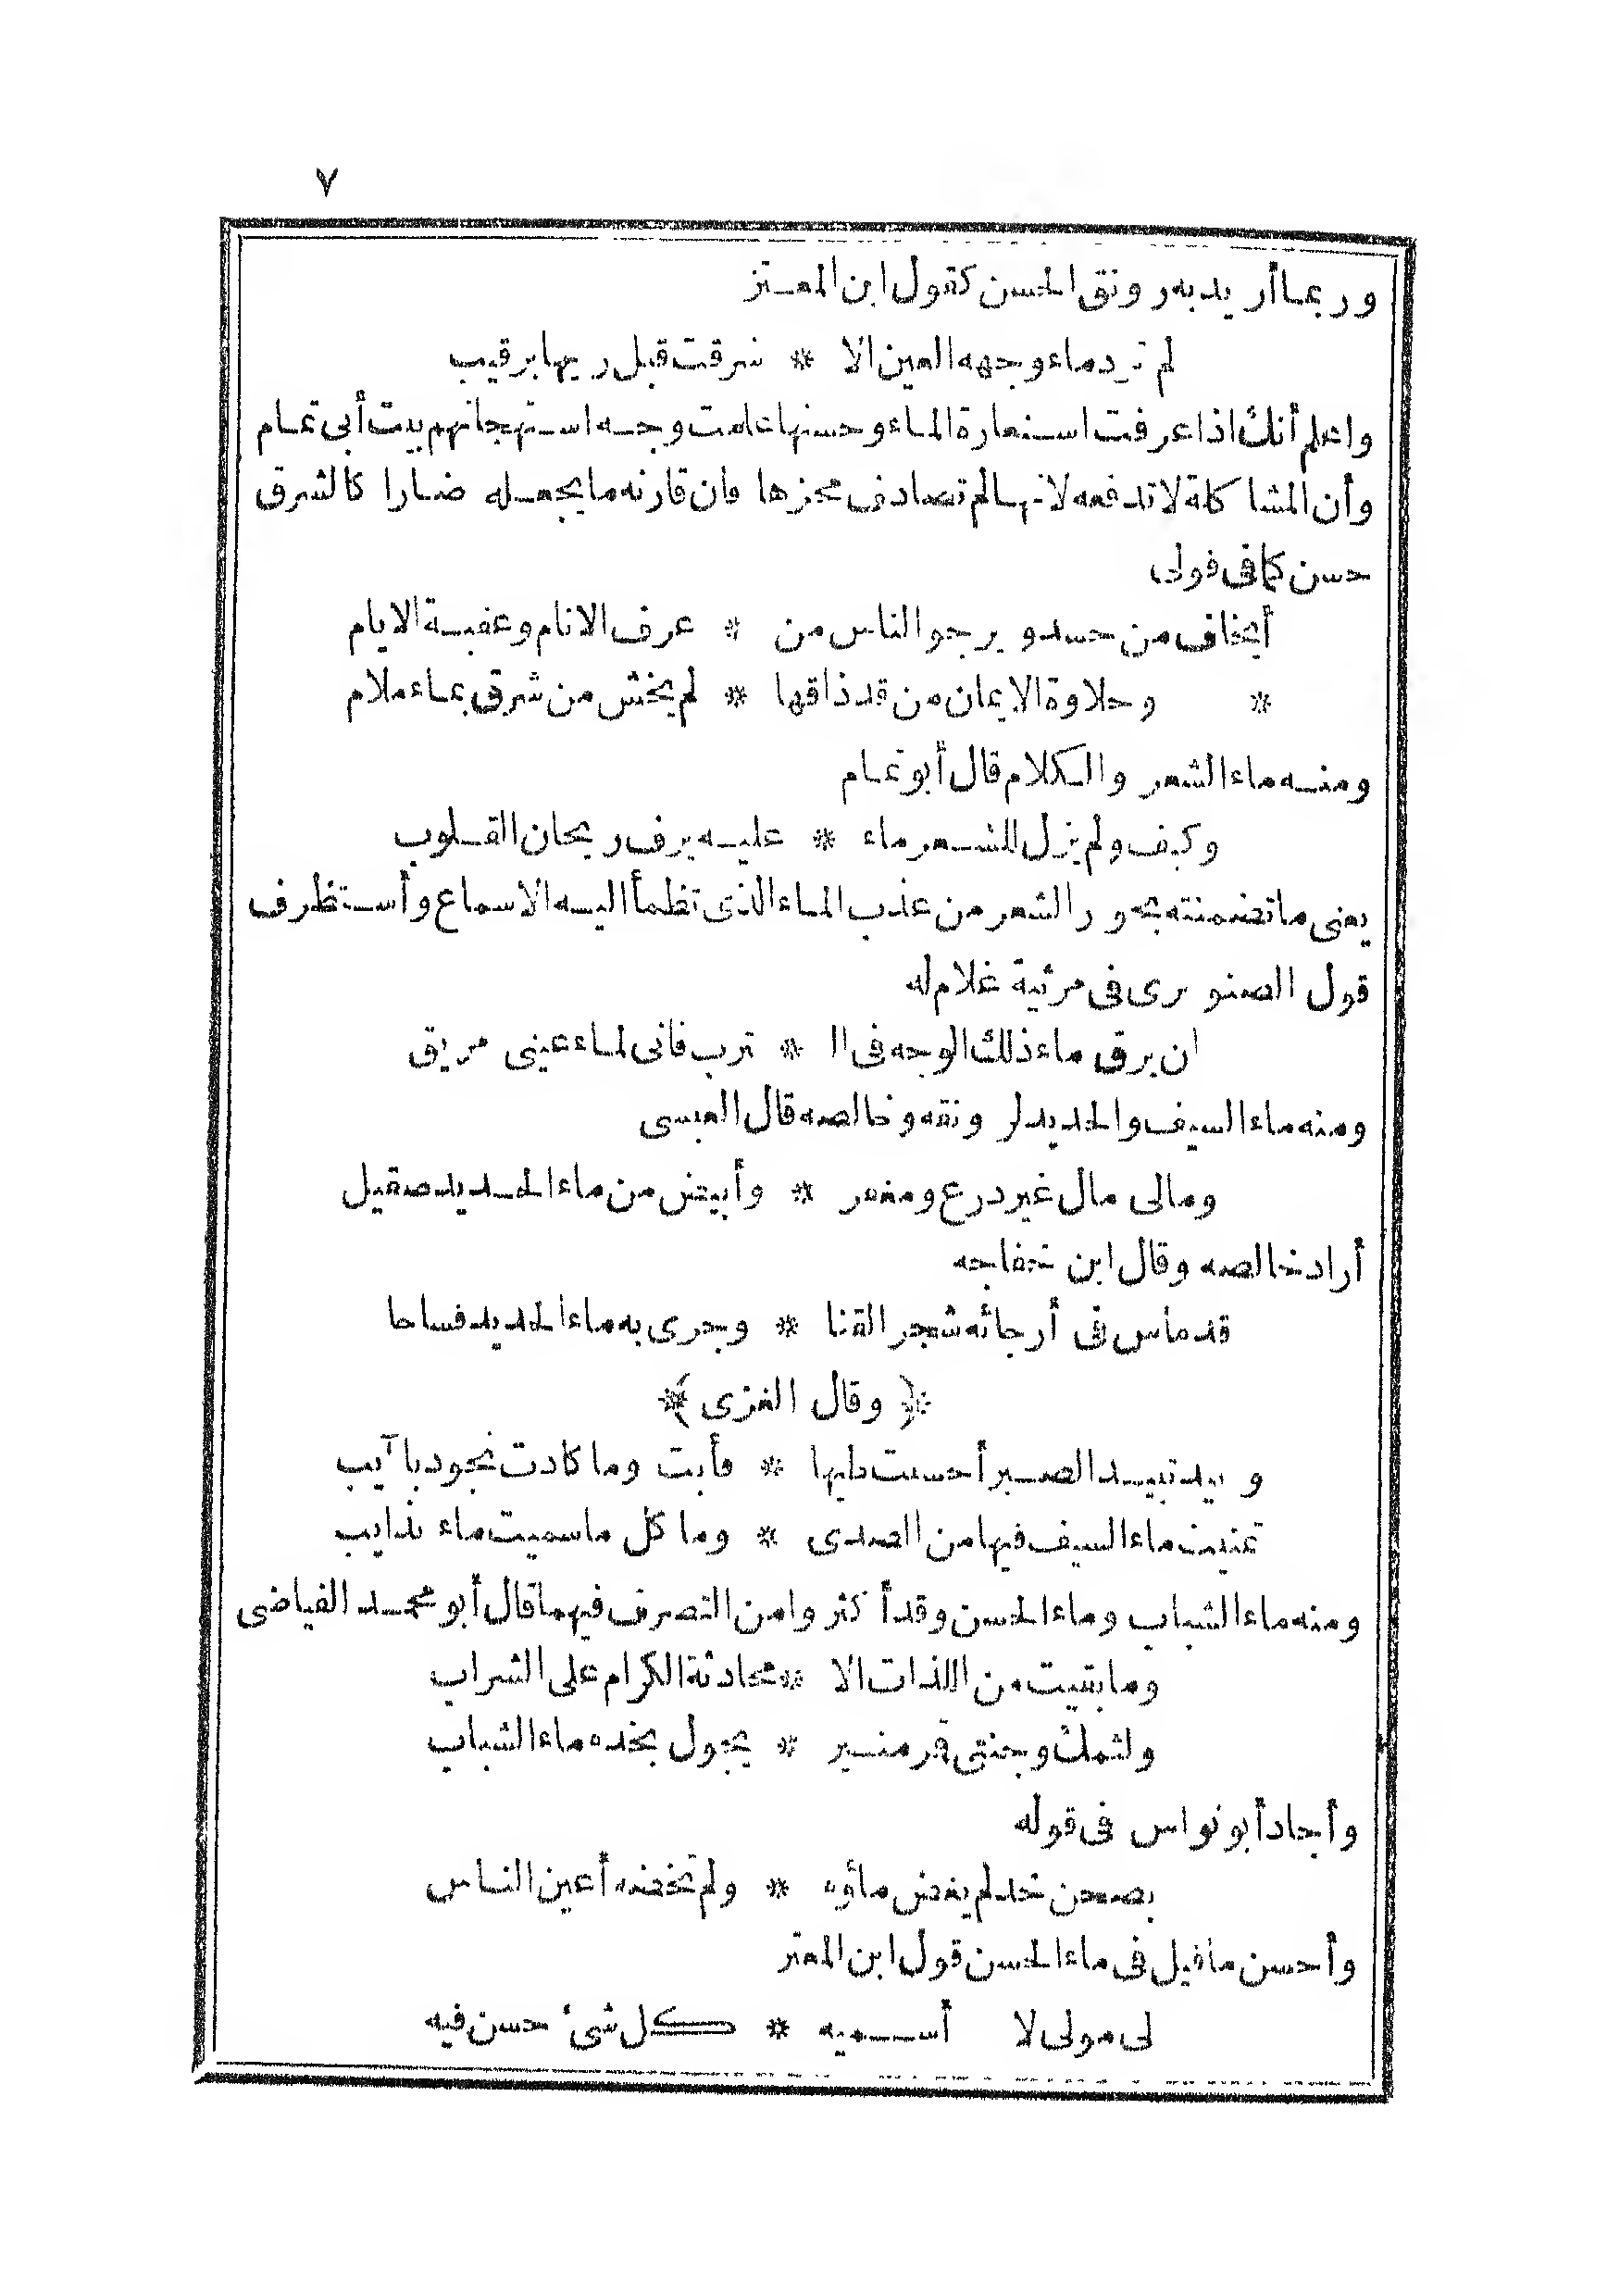 ٧
وربما أريد به رونق الحسن كقول ابن المعتز
لم ترد ماء وجهه العين الا * شرقت قبل ريها برقيب
واعلم أنك اذا عرفت استعارة الماء وحسنها علمت وجه استهجانهم بيت أبى تمام
وأن المشاكلة لا تدفعه لانها لم تصادف محزها فان قارنه ما يجعله ضارا كالشرق
حسن كما فى قولى
أيخاف من حسد ويرجو الناس من * عرف الانام وعقبة الايام
* وحلاوة الايمان من قد ذاقها * لم يخش من شرق بماء ملام
ومنه ماء الشعر والكلام قال أبو تمام
وكيف ولم يزل للشعر ماء * عليه يرف ريحان القلوب
يعنى ما تضمنته بحور الشعر من عذب الماء الذى تظمأ اليه الاسماع وأستظرف
قول الصنوبرى فى مرثية غلام له
ان يرق ماء ذلك الوجه فى ال * ترب فانى لماء عينى مريق
ومنه ماء السيف والحديد لرونقه وخالصه قال العبسى
ومالى مال غير درع ومغفر * وأبيض من ماء الحديد صقيل
أراد خالصه وقال ابن خفاجه
قد ماس فى أرجائه شجر القنا * وجرى به ماء الحديد فساحا
﴿ وقال الغزى ﴾
وبيد تبيد الصبر أحسنت طيها * فأبت وما كادت تجود بآيب
تمنيت ماء السيف فيها من الصدى * وما كل ما سميت ماء بذايب
ومنه ماء الشباب وماء الحسن وقد أكثروا من التصرف فيهما قال أبو محمد الفياضى
وما بقيت من اللذات الا * محادثة الكرام على الشراب
ولثمك وجنتى قمر منير * يجول بخده ماء الشباب
وأجاد أبو نواس فى قوله
بصحن خد لم يغض ماؤه * ولم تخضه أعين الناس
وأحسن ما قيل فى ماء الحسن قول ابن المعتز
لى مولى لا أسميه * كل شئ حسن فيه